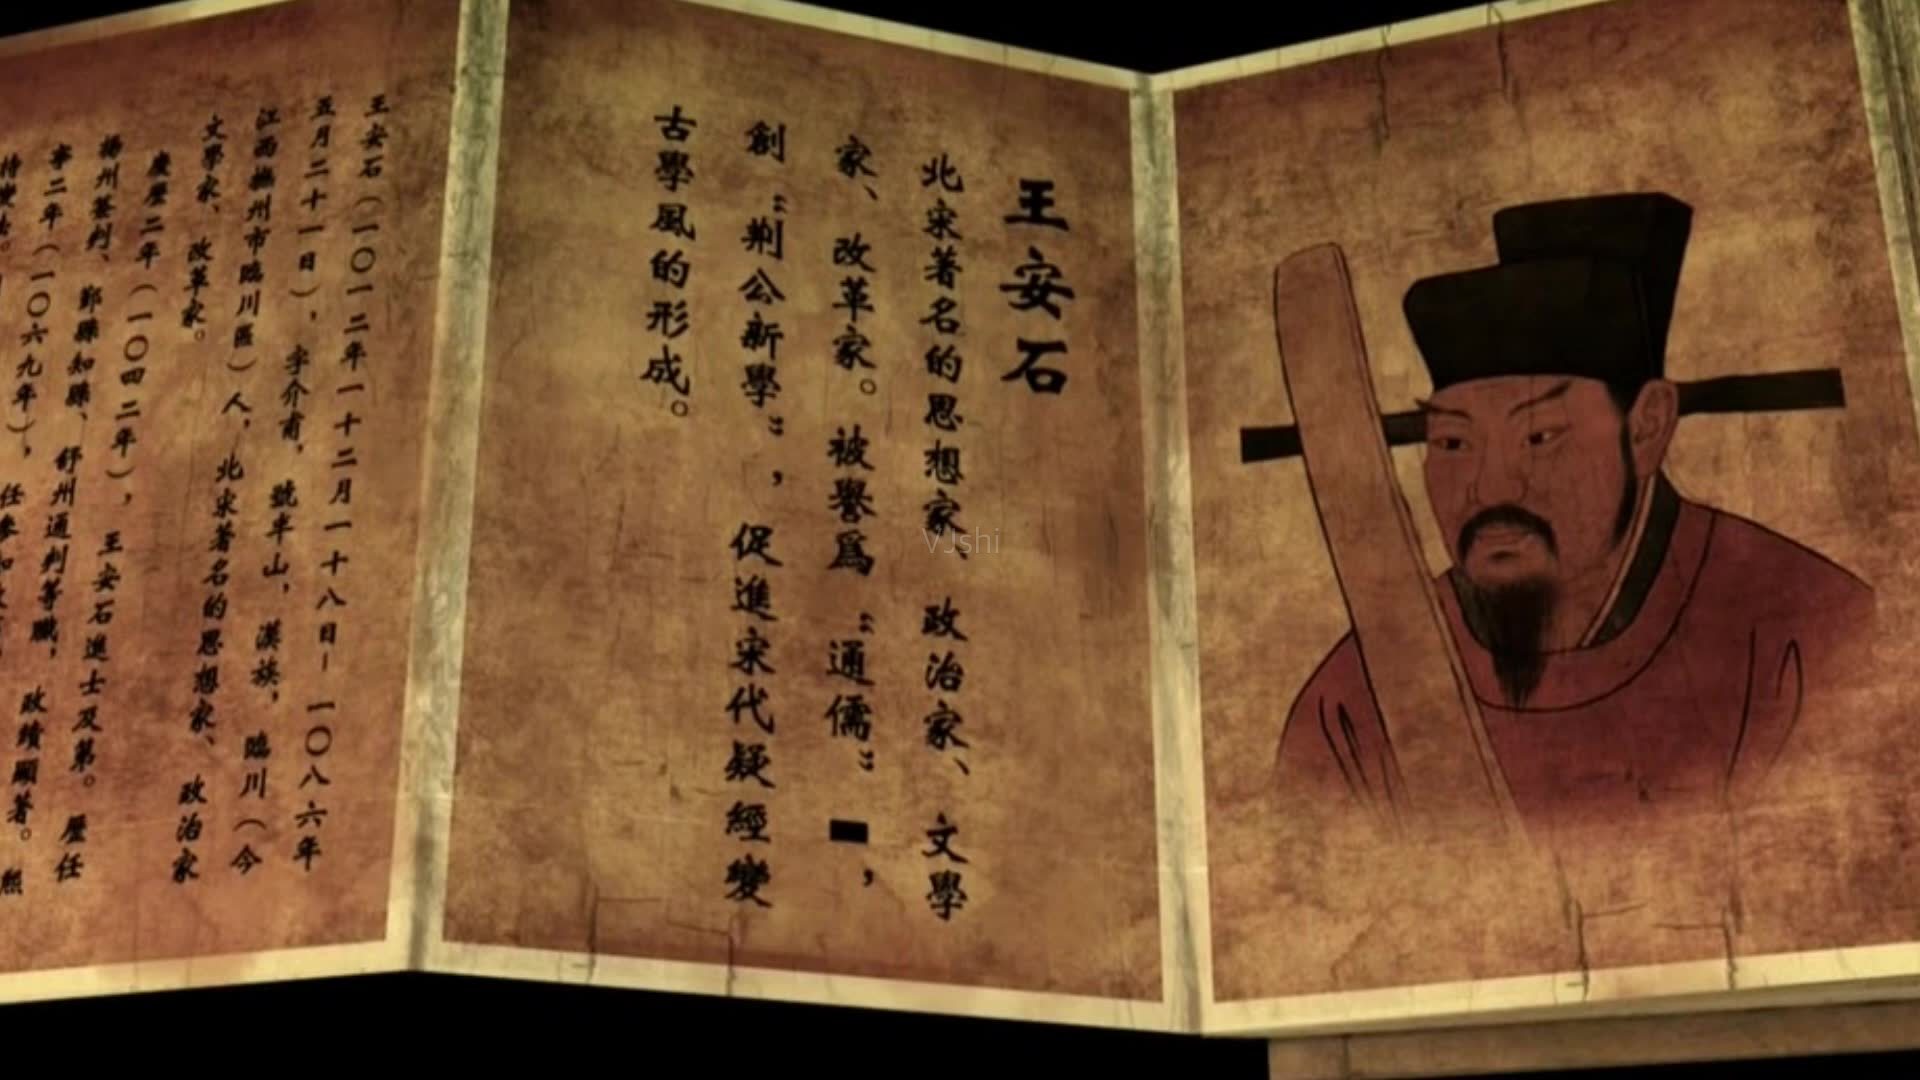 王安石
北宋著名的思想家、政治家、文學
家、改革家。被譽爲“通儒”，
創“荆公新學”，促進宋代疑經變
古學風的形成。
王安石（一〇一二年一十二月一十八日－一〇八六年
五月二十一日），字介甫，號半山，漢族，臨川（今
江西撫州市臨川區）人，北宋著名的思想家、政治家
文學家、改革家。
慶歷二年（一〇四二年），王安石進士及第。歷任
揚州簽判、鄞縣知縣、舒州通判等職，政績顯著。熙
寧二年（一〇六九年），任參知
VJshi